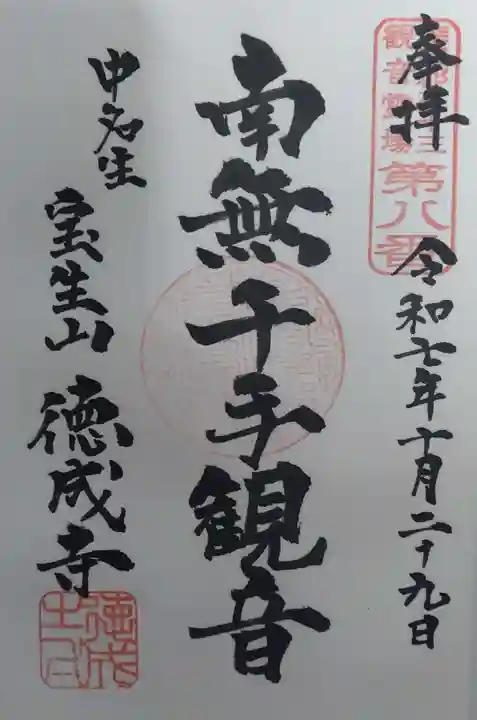 奉拝
観音霊場
第八番
令和七年十月二十九日
南無千手観音
中名生
宝生山 徳成寺